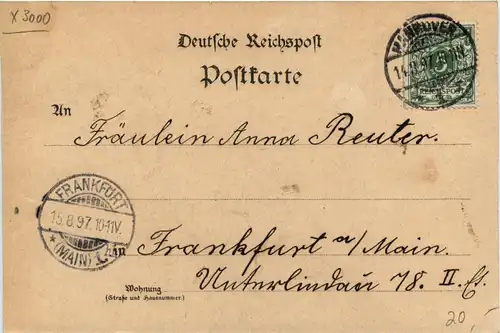 x 3000
Deutsche Reichspost
Postkarte
HANNOVER
14.8.97.
5
REICHSPOST
An
Fräulein Anna Reuter.
FRANKFURT
15.8.97.10-11V.
* (MAIN) 1.
in
Frankfurt a/Main.
Wohnung
(Straße und Hausnummer)
Unterlindau 78. II. Et.
20,-